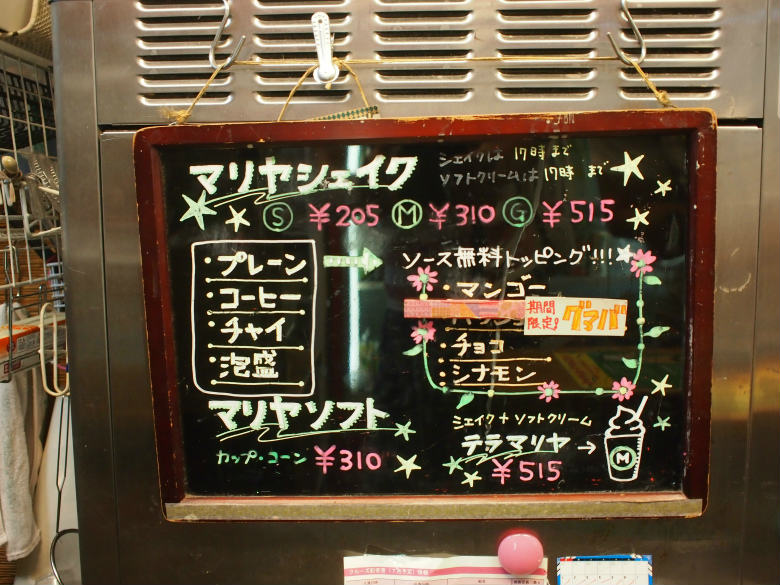 マリヤシェイク
シェイクは 17時まで
ソフトクリームは 17時 まで
S ¥205 M ¥310 G ¥515
・プレーン
・コーヒー
・チャイ
・泡盛
ソース無料トッピング!!!
・マンゴー
期間限定! グァバ
・チョコ
・シナモン
マリヤソフト
カップ・コーン ¥310
シェイク+ソフトクリーム
テラマリヤ→
¥515
M